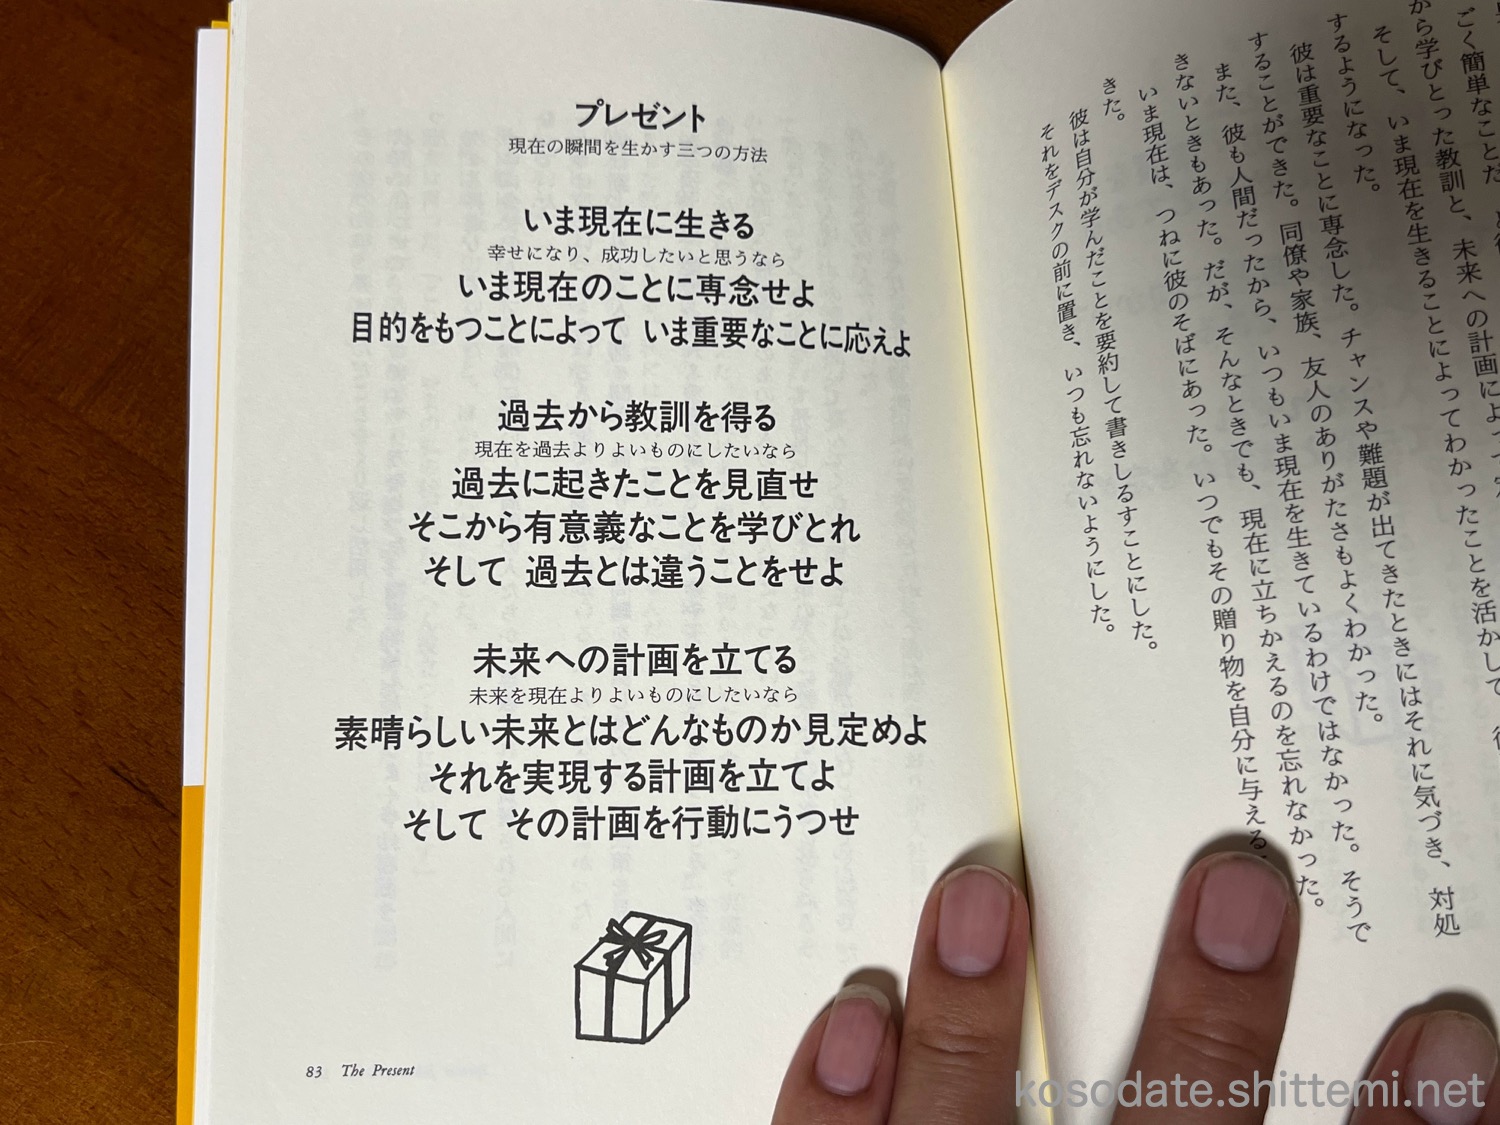 プレゼント
現在の瞬間を生かす三つの方法
いま現在に生きる
幸せになり、成功したいと思うなら
いま現在のことに専念せよ
目的をもつことによって いま重要なことに応えよ
過去から教訓を得る
現在を過去よりよいものにしたいなら
過去に起きたことを見直せ
そこから有意義なことを学びとれ
そして 過去とは違うことをせよ
未来への計画を立てる
未来を現在よりよいものにしたいなら
素晴らしい未来とはどんなものか見定めよ
それを実現する計画を立てよ
そして その計画を行動にうつせ
83 The Present
ごく簡単なことだ
から学びとった教訓と、未来への計画によって
そして、いま現在を生きることによってわかったことを活かして
するようになった。
彼は重要なことに専念した。チャンスや難題が出てきたときにはそれに気づき、対処
することができた。同僚や家族、友人のありがたさもよくわかった。
また、彼も人間だったから、いつもいま現在を生きているわけではなかった。そうで
きないときもあった。だが、そんなときでも、現在に立ちかえるのを忘れなかった。
いま現在は、つねに彼のそばにあった。いつでもその贈り物を自分に与える
きた。
彼は自分が学んだことを要約して書きしるすことにした。
それをデスクの前に置き、いつも忘れないようにした。
kosodate.shittemi.net